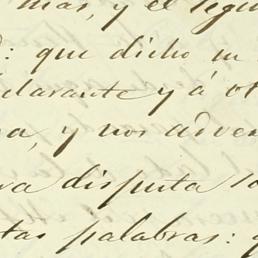 mas, y el segu
: que dicho m
clarante y á ot
a, y nos adver
ra disputa so
tas palabras: q